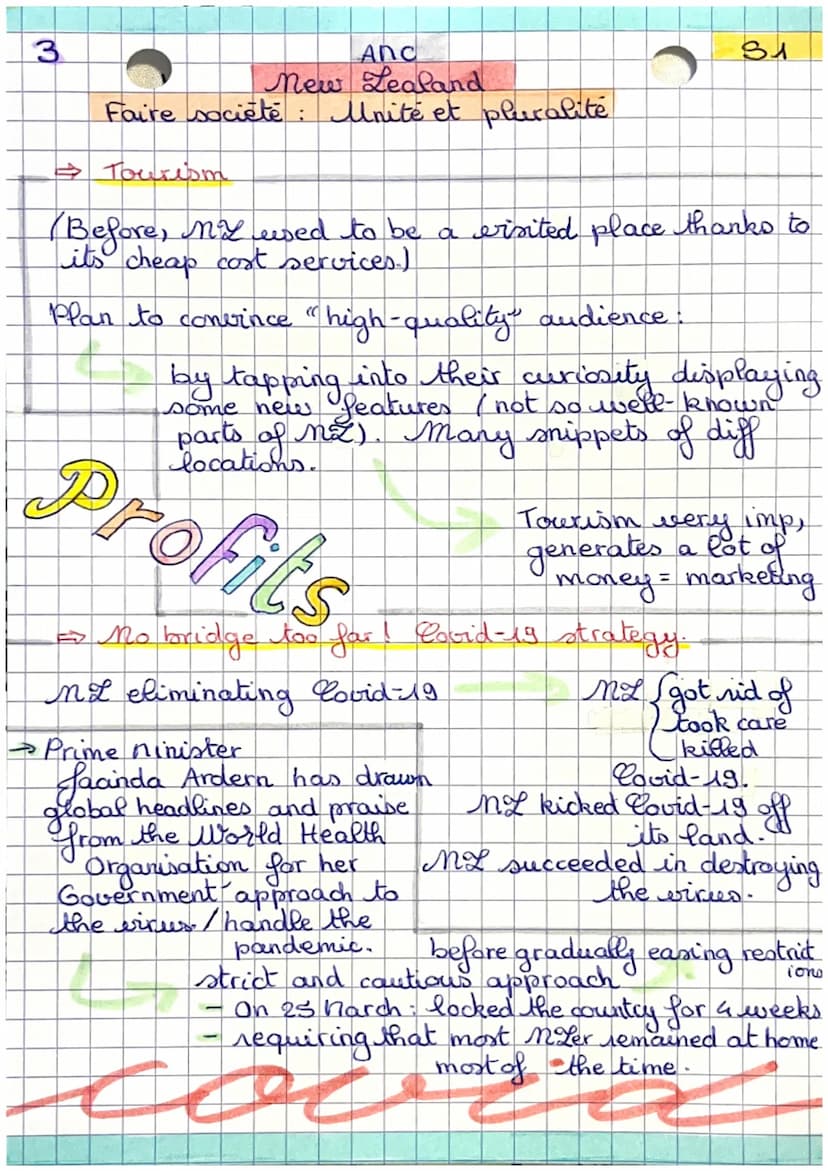 3
ANC
S1
New Zealand
Faire société : Unité et pluralité
⇒ Tourism
(Before, NZ used to be a visited place thanks to
its cheap cost services.)
Plan to convince "high-quality" audience :
by tapping into their curiosity displaying
some new features (not so well-known
parts of NZ). Many snippets of diff
locations.
Profits
Tourism very imp,
generates a lot of
money = marketing
⇒ No bridge too far! Covid-19 strategy.
NZ eliminating Covid-19
NZ { got rid of
took care
killed
Covid-19.
→ Prime Minister
Jacinda Ardern has drawn
global headlines and praise
from the World Health
Organisation for her
Government approach to
the virus / handle the
pandemic.
NZ kicked Covid-19 off
its land.
NZ succeeded in destroying
the virus.
before gradually easing restrict
ions
strict and cautious approach
- On 25 March : locked the country for 4 weeks
- requiring that most NZer remained at home
most of the time.
covid